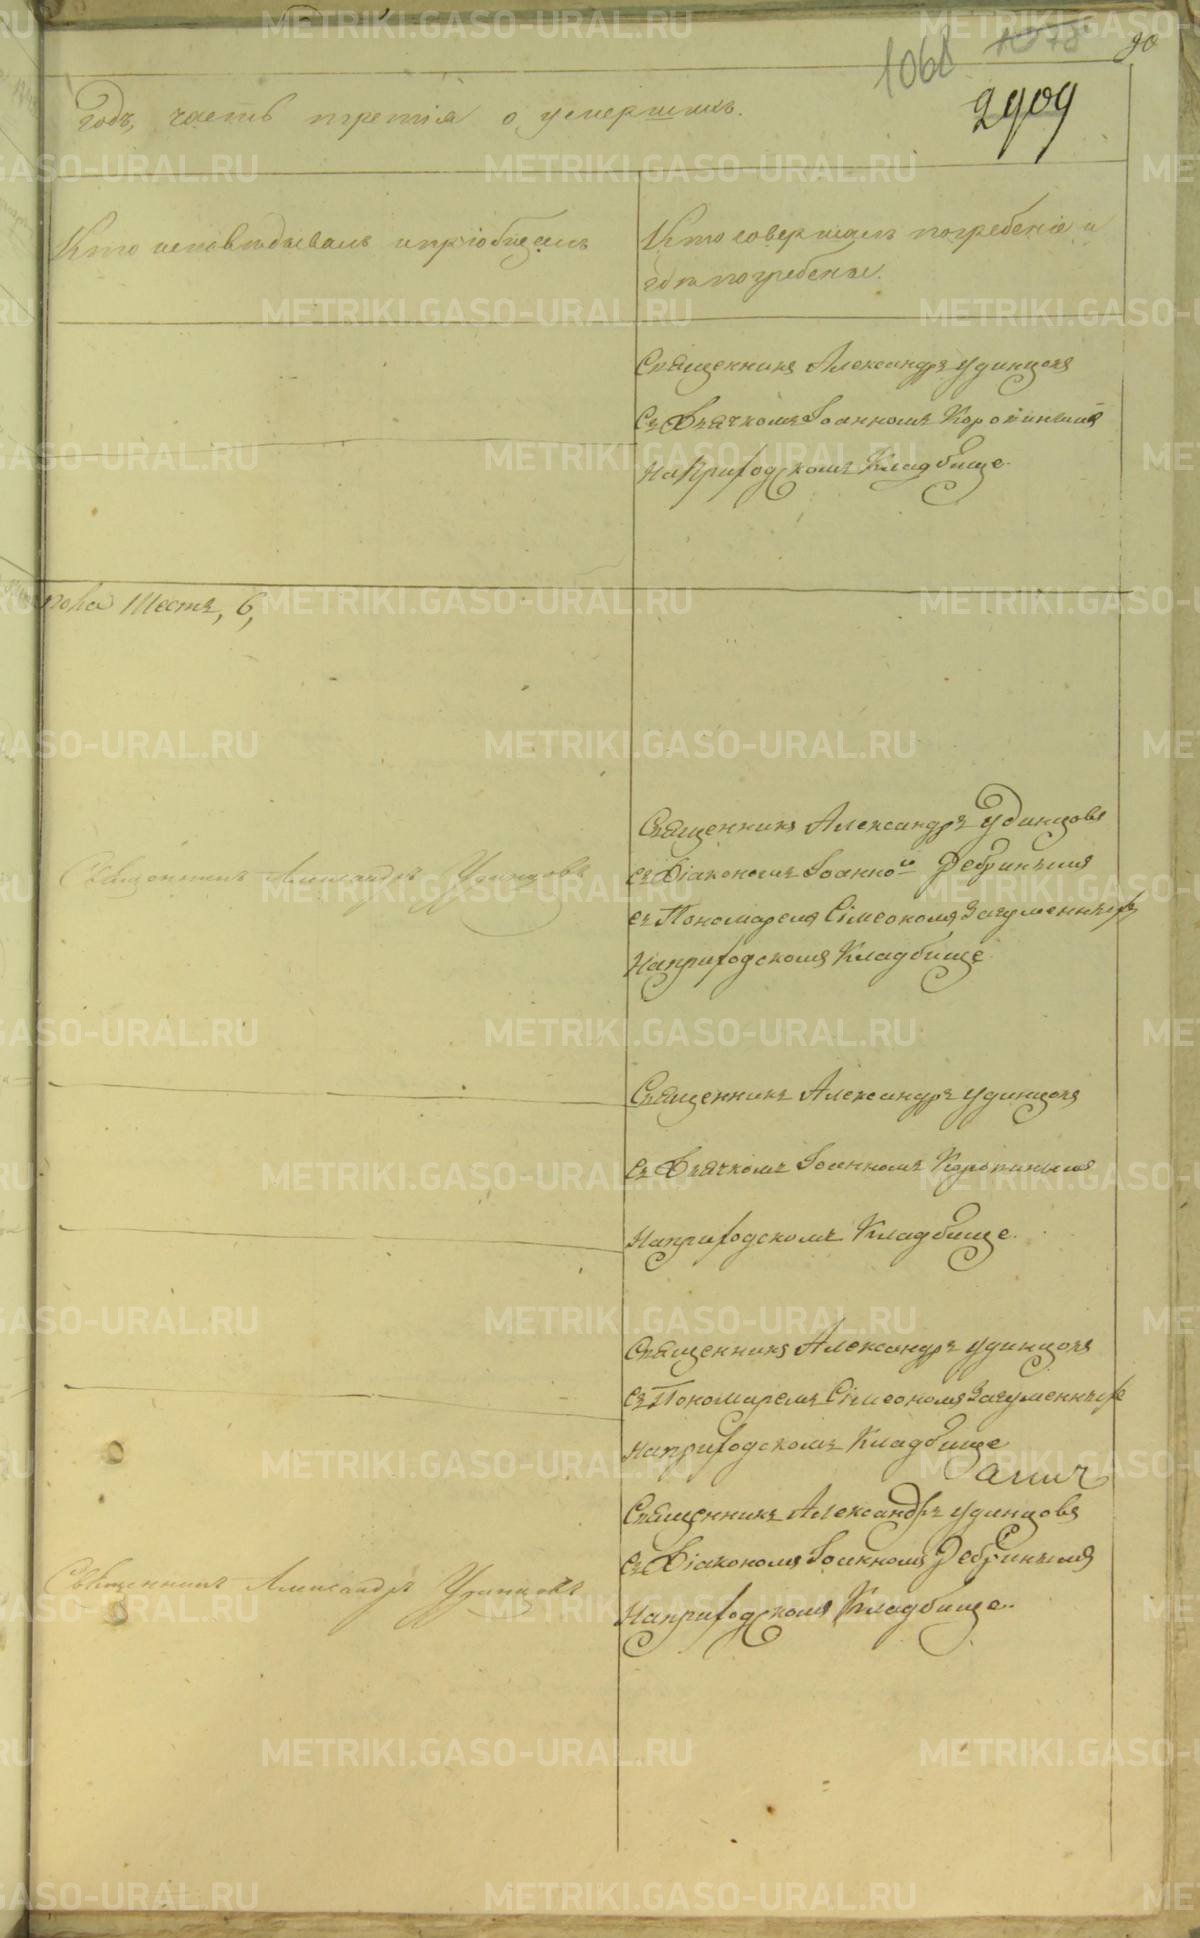 1068 1078 90
2909
Годъ, часть третія о умершихъ.
Кто исповѣдывалъ и пріобщалъ
Кто совершалъ погребеніе и
гдѣ погребены.
Священникъ Александръ Удинцовъ
съ Дьячкомъ Іоанномъ Коропинымъ
на Приходскомъ Кладбище.
пола Шесть, 6,
Священникъ Александръ Удинцовъ
Священникъ Александръ Удинцовъ
съ Діакономъ Іоанно Ребринымъ
съ Пономаремъ Сімеономъ Загуменныхъ
на приходскомъ Кладбище
Священникъ Александръ Удинцовъ
съ Дьячкомъ Іоанномъ Коропинымъ
на приходскомъ Кладбище.
Священникъ Александръ Удинцовъ
съ Пономаремъ Сімеономъ Загуменныхъ
на приходскомъ Кладбище
Священникъ Александръ Удинцовъ
Священникъ Александръ Удинцовъ
съ Діакономъ Іоанномъ Ребринымъ
на приходскомъ Кладбище.
METRIKI.GASO-URAL.RU